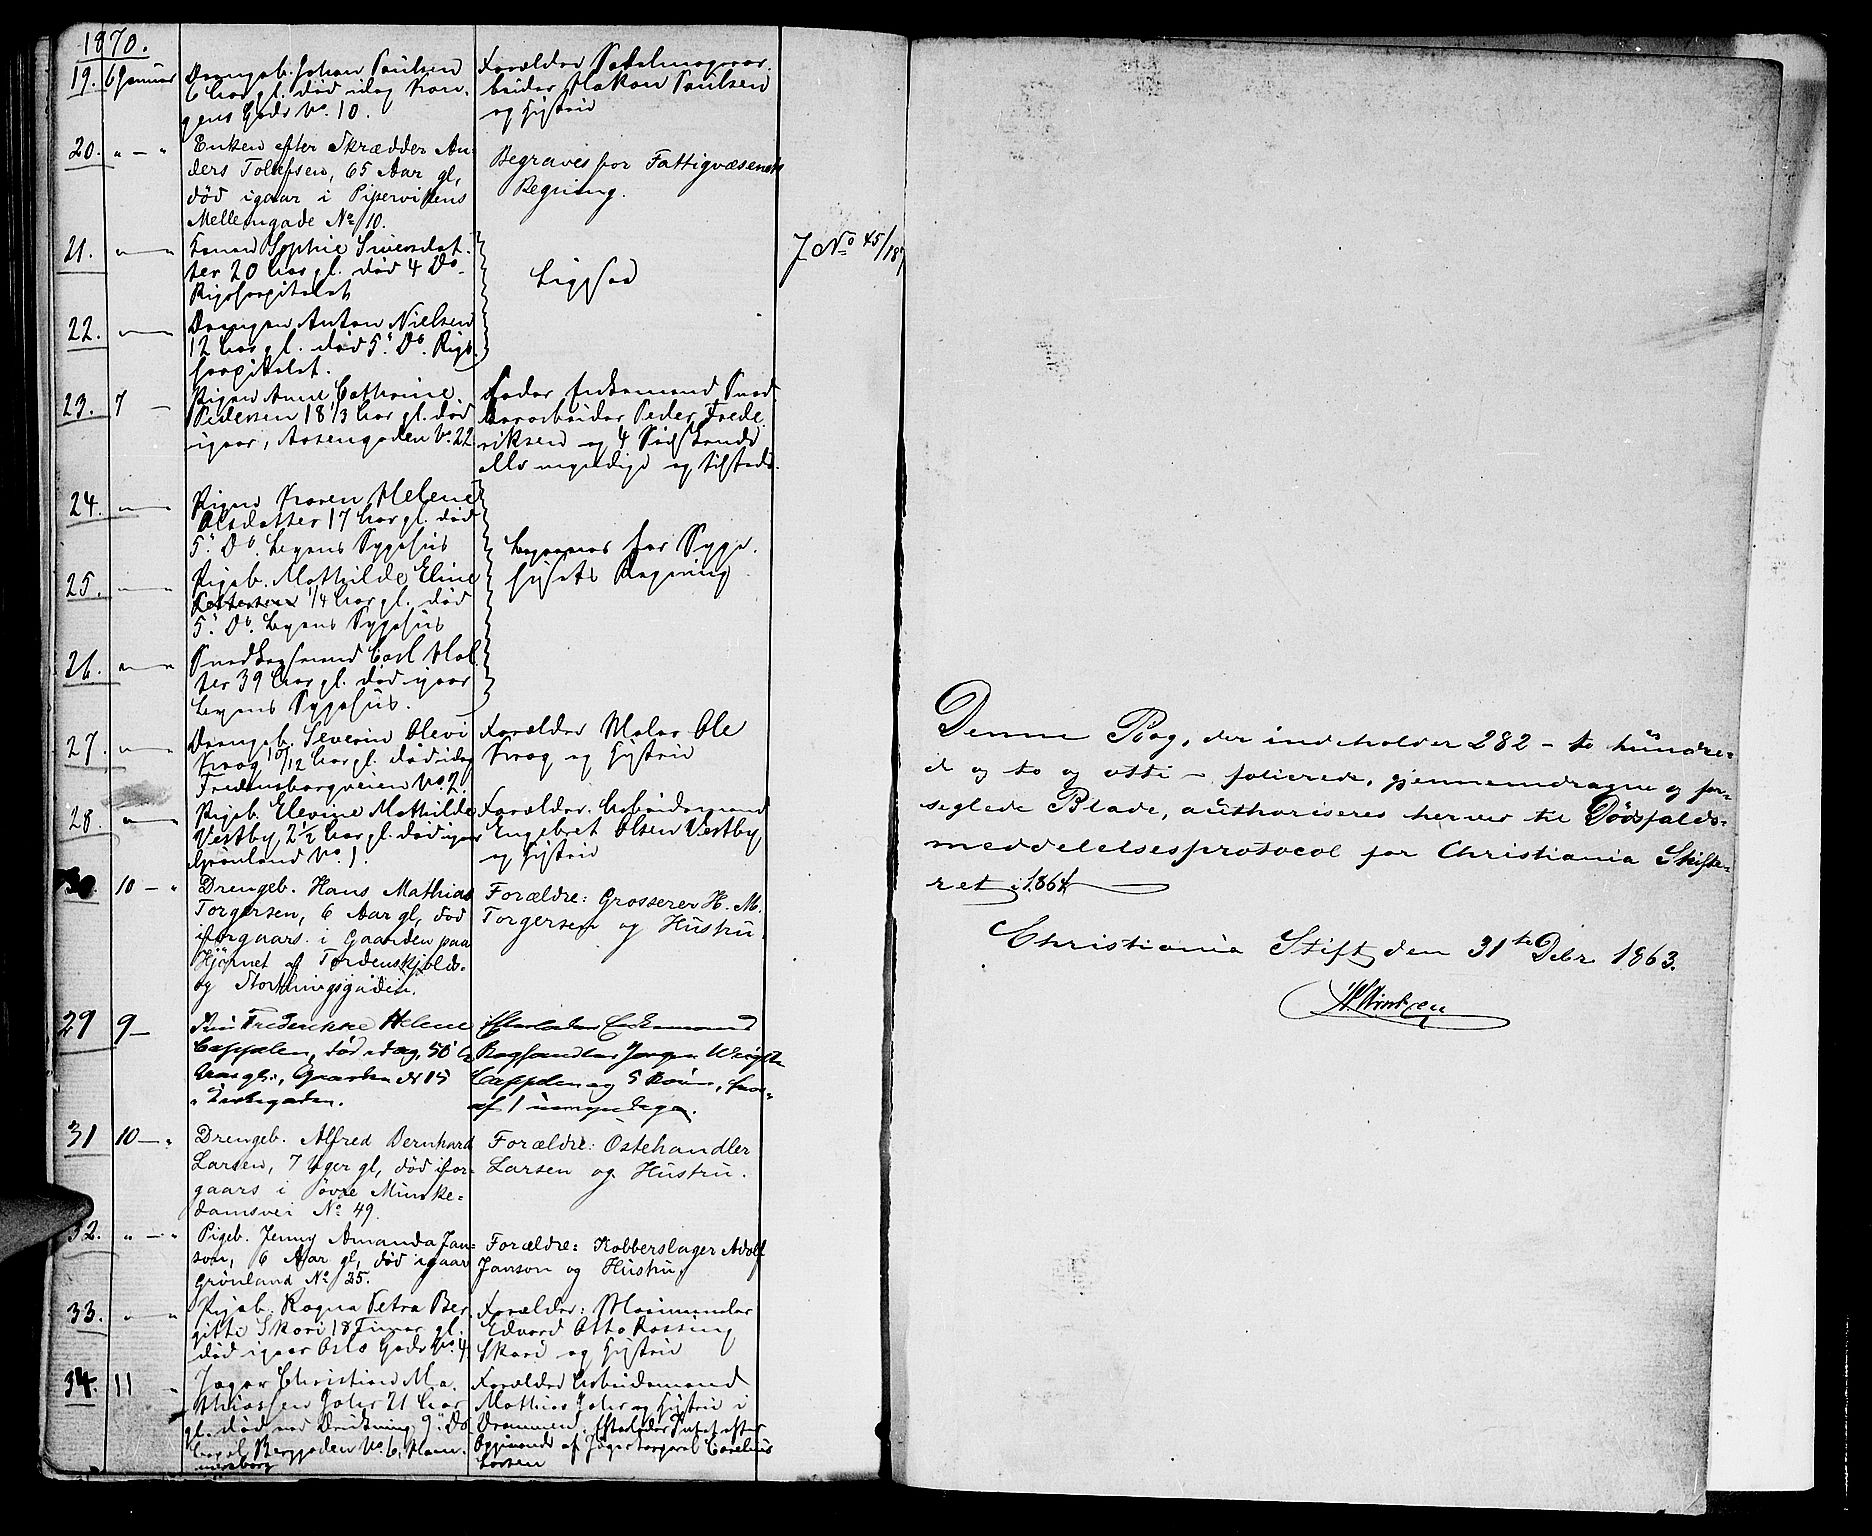 1870.
19. 6 Januar Drengeb. Johan Paulsen
6 Aar gl. død idag Kon-
gens Gade No. 10.
Forældre Sadelmagerar-
beider Hakon Paulsen
og Hustru
20. " — " Enken efter Skrædder An-
ders Tollefsen, 65 Aar gl,
død igaar i Pipervikens
Mellemgade No 10.
Begraves for Fattigvæsenets
Regning.
21. " — " Sophie Siversdat-
ter 20 Aar gl. død 4 Ds.
Rigshospitalet
Ligesaa
J No 45/187
22. " — " Drengen Anton Nielsen
12 Aar gl. død 5. Ds. Rigs-
hospitalet.
23. 7 — Pigen Anne Cathrine
Pedersen 18 1/3 Aar gl. død
igaar, Aasengaden No. 22
Fader Enkemand
Peder Frede-
riksen og 4 Sødskende
alle myndige og tilstede.
24. " — " Pigen Karen Helene
Olsdatter 17 Aar gl. død
5. Ds. Byens Sygehus
Begraves for Syge-
husets Regning
25. " — " Pigeb. Mathilde Eline
1/4 Aar gl. død
5. Ds. Byens Sygehus
26. " — " Carl Hol-
ter 39 Aar gl. død igaar
Byens Sygehus.
27. " — " Drengeb. Severin Olevi
Krog 10/12 Aar gl. død idag
Fredensborgveien No. 2.
Forældre Maler Ole
Krog og Hustru
28. " — " Pigeb. Elevine Mathilde
Vestby 2 1/2 Aar gl. død igaar
Grønland No. 1.
Forældre Arbeidsmand
Engebret Olsen Vestby
og Hustru
30. 10 — " Drengeb. Hans Mathias
Torgersen, 6 Aar gl, død
iforgaars i Gaarden paa
Hjørnet af Tordenskjolds-
og Storthingsgaden.
Forældre: Grosserer H. M.
Torgersen og Hustru.
29 9 — Fru Frederikke Helene
Cappelen, død idag, 50
Aar gl., Gaarden No 15
i Kirkegaden.
Efterlader Enkemand
Boghandler Jørgen Wright
Cappelen og 5 Børn, hvor-
af 1 umyndigen.
31 10 — " Drengeb. Alfred Bernhard
Larsen, 7 Uger gl, død ifor-
gaars i Øvre Munke-
damsvei No 49.
Forældre: Ostehandler
Larsen og Hustru.
32. " — " Pigeb. Jenny Amanda Jan-
son, 6 Aar gl, død igaar
Grønland No 25.
Forældre: Kobberslager Adolf
Janson og Hustru.
33. " — " Pigeb. Ragna Petra Ber-
gitte Skari 18 Timer gl.
død igaar Oslo Gade No. 4
Forældre:
Edvard Otto Rossing
Skari og Hustru
34. 11 " Jæger Christian Ma-
thiassen 21 Aar
gl. død ved Drukning 9. Ds
Berggaden No. 6, Ham-
mersborg
Forældre Arbeidsmand
Mathias og Hustru i
Drammen. Efterlader Intet efter
Opgivende af Jægercorporal Cornelius
Larsen
Denne Bog, der indeholder 282 - to hundre-
de og to og otti - folierede, gjennemdragne og for-
seglede Blade, authoriseres herved til Dødsfalds-
meddelelsesprotocol for Christiania Skifte-
ret i 1864
Christiania Stift den 31te Decbr 1863.